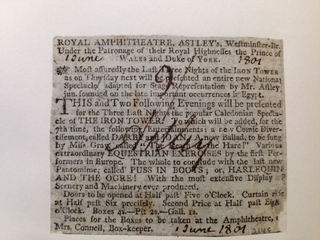 ROYAL AMPHITHEATRE, ASTLEY's, Westminster-Br.
Under the Patronages of their Royal Highnesses the Prince of
WALES and Duke of YORK.
1 June 1801
Most assuredly the Last Three Nights of the IRON TOWER
as on Thursday next will be presented an entire new National
Spectacle, adapted for Stage Representation by Mr. Astley,
jun. founded on the late important occurrences in Egypt.
THIS and Two Following Evenings will be presented
for the Three Last Nights the popular Caledonian Specta-
cle of THE IRON TOWER! To which will be added, for the
7th time, the following Entertainments: a new Comic Diver-
tisement, called DARBY and A new Ballad, to be sung
by Miss Gray, called the Hare!" Various
extraordinary EQUESTRIAN EXERCISES by the first Per-
formers in Europe. The whole to conclude with the last new
Pantomime, called PUSS IN BOOTS; or, HARLEQUIN
AND THE OGRE! With the most extensive Display of
Scenery and Machinery ever produced.
Doors to be opened at Half past Five o'Clock. Curtain rises
at Half past Six precisely. Second Price at Half past Eight
o'Clock. Boxes 4s.—Pit 2s.—Gall. 1s.
Places for the Boxes to be taken at the Amphitheatre, of
Mrs. Connell, Box-keeper.
1 June 1801